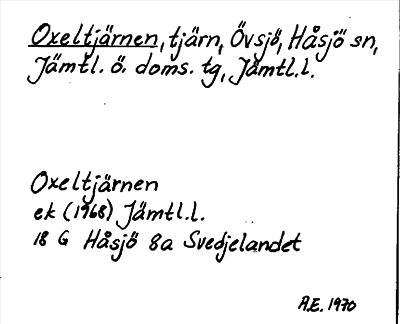 Oxeltjärnen, tjärn, Övsjö, Håsjö sn,
Jämtl. ö. doms. tg, Jämtl.l.
Oxeltjärnen
ek (1968) Jämtl.l.
18 G Håsjö 8a Svedjelandet
A.E. 1970